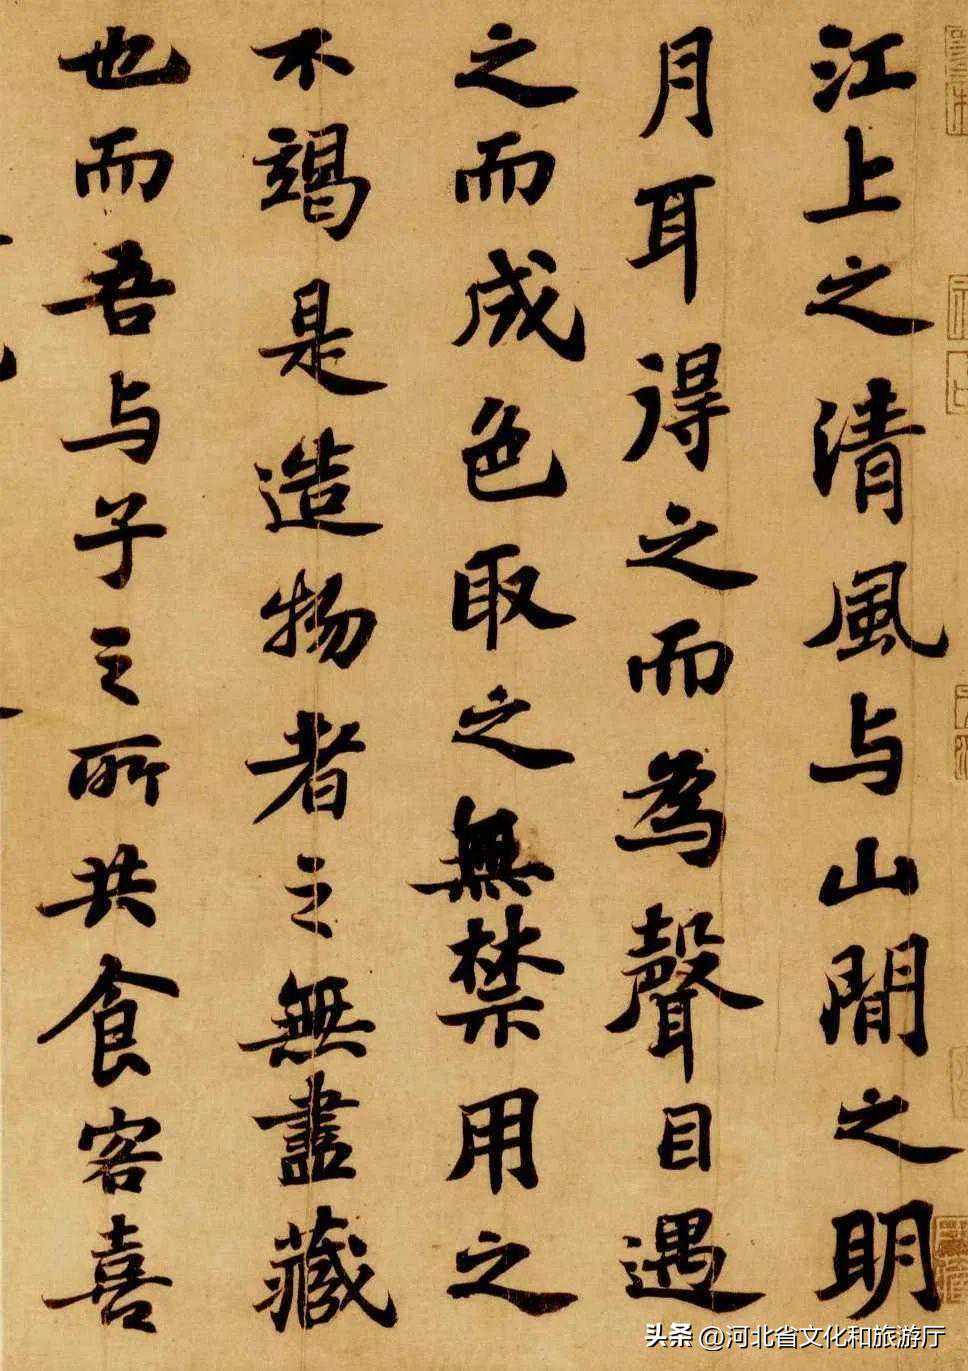 江上之清風与山間之明
月耳得之而為聲目遇
之而成色取之無禁用之
不竭是造物者之無盡藏
也而吾与子之所共食客喜
头条 @河北省文化和旅游厅